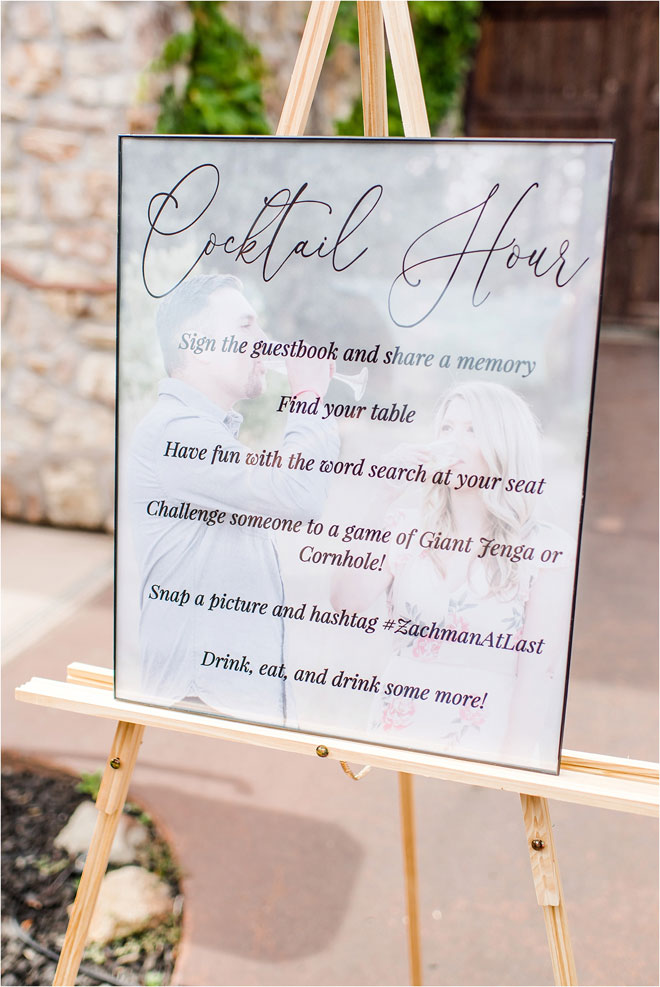 Cocktail Hour
Sign the guestbook and share a memory
Find your table
Have fun with the word search at your seat
Challenge someone to a game of Giant Jenga or
Cornhole!
Snap a picture and hashtag #ZachmanAtLast
Drink, eat, and drink some more!